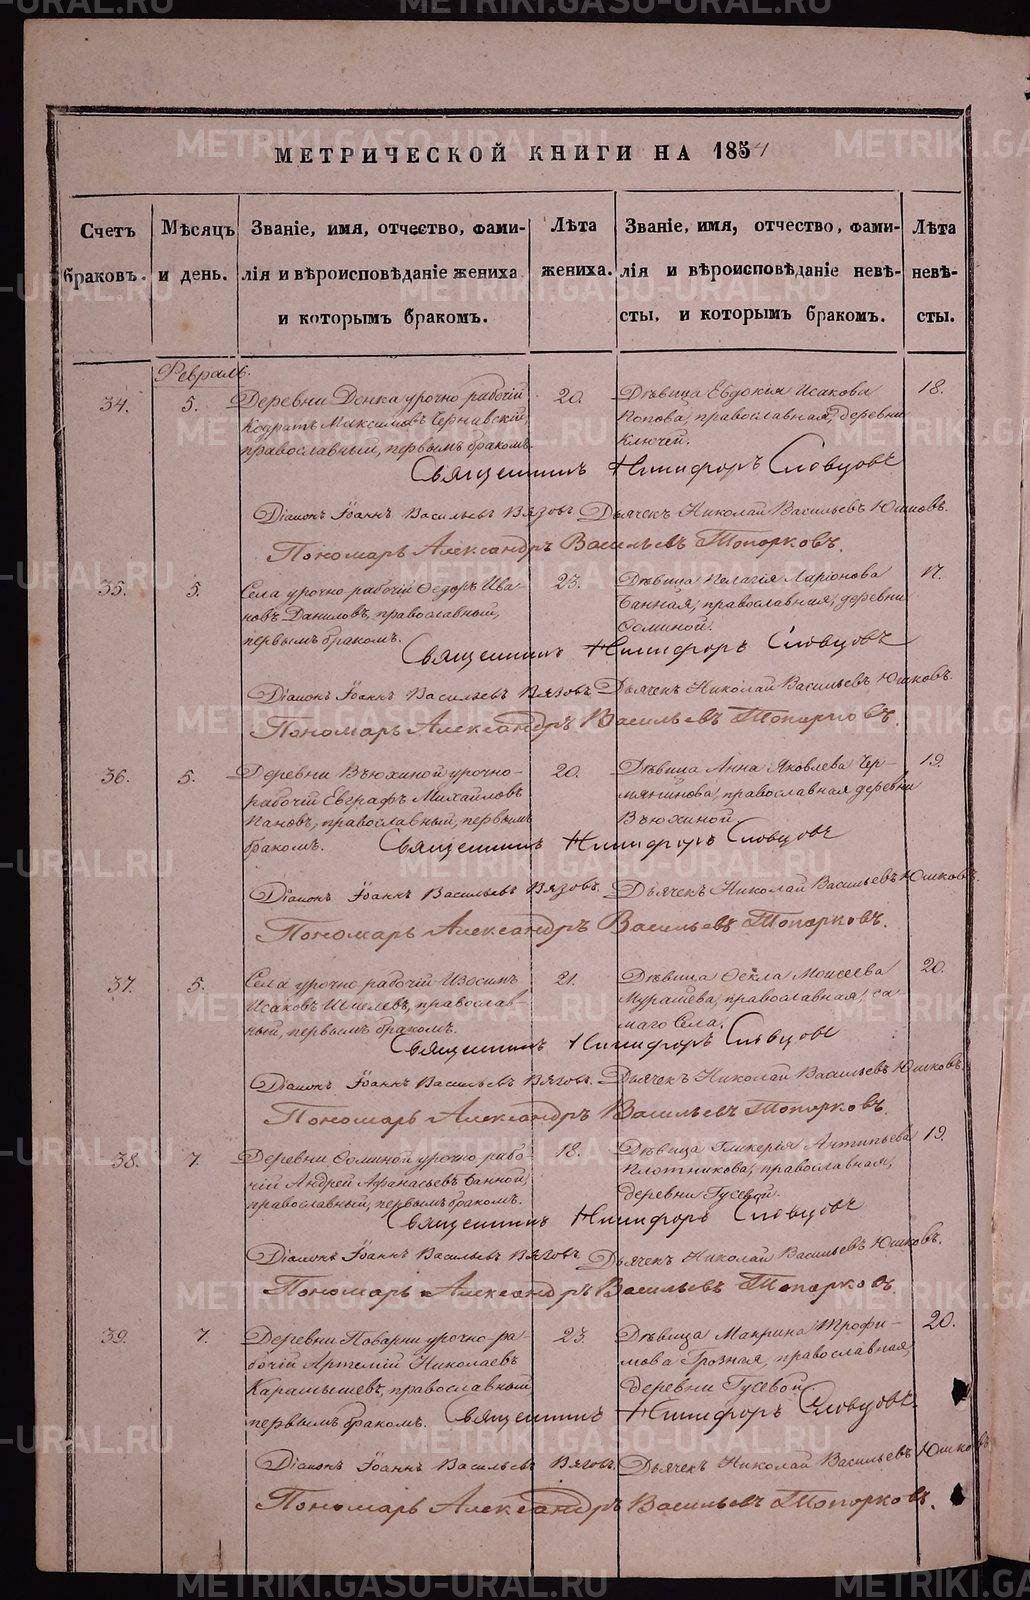 МЕТРИЧЕСКОЙ КНИГИ НА 1854
Счетъ браковъ.
Мѣсяцъ и день.
Званіе, имя, отчество, фами-
лія и вѣроисповѣданіе жениха
и которымъ бракомъ.
Лѣта жениха.
Званіе, имя, отчество, фами-
лія и вѣроисповѣданіе невѣ-
сты, и которымъ бракомъ.
Лѣта невѣ-
сты.
Февраль.
34. 5. Деревни Донка урочно рабочій 20. Дѣвица Евдокія Исакова 18.
Кодратъ Максимовъ Чернавскій, Попова, православная, деревни
православный, первымъ бракомъ. Ключей.
Священникъ Никифоръ Словцовъ
Діаконъ Іоаннъ Васильевъ Вязовъ Дьячекъ Николай Васильевъ Юшковъ.
Пономарь Александръ Васильевъ Топорковъ.
35. 5. Села урочно рабочій Ѳедоръ Ива- 23. Дѣвица Пелагія Ларіонова 17.
новъ Даниловъ, православный, Банная, православная, деревни
первымъ бракомъ. Осминой.
Священникъ Никифоръ Словцовъ
Діаконъ Іоаннъ Васильевъ Вязовъ Дьячекъ Николай Васильевъ Юшковъ.
Пономарь Александръ Васильевъ Топорковъ.
36. 5. Деревни Вьюхиной урочно- 20. Дѣвица Анна Яковлева Чер- 19.
рабочій Евграфъ Михайловъ православная деревни
Пановъ, православный, первымъ Вьюхиной.
бракомъ. Священникъ Никифоръ Словцовъ
Діаконъ Іоаннъ Васильевъ Вязовъ. Дьячекъ Николай Васильевъ Юшковъ.
Пономарь Александръ Васильевъ Топорковъ.
37. 5. Села урочно рабочій Изосимъ 21. Дѣвица Ѳекла Моисеева 20.
Исаковъ Шмелевъ, православ- Мурашева, православная, са-
ный, первымъ бракомъ. маго Села.
Священникъ Никифоръ Словцовъ
Діаконъ Іоаннъ Васильевъ Вязовъ. Дьячекъ Николай Васильевъ Юшковъ.
Пономарь Александръ Васильевъ Топорковъ.
38. 7. Деревни Осминой урочно рабо- 18. Дѣвица Гликерія Антипьева 19.
чій Андрей Афанасьевъ Банной, Плотникова, православная,
православный, первымъ бракомъ. деревни Гусевой.
Священникъ Никифоръ Словцовъ
Діаконъ Іоаннъ Васильевъ Вязовъ Дьячекъ Николай Васильевъ Юшковъ.
Пономарь Александръ Васильевъ Топорковъ
39. 7. Деревни Поварни урочно-ра- 23. Дѣвица Макрина Трофи- 20.
бочій Артемій Николаевъ мова Грозная, православная,
Карамышевъ, православный деревни Гусевой.
первымъ бракомъ. Священникъ Никифоръ Словцовъ.
Діаконъ Іоаннъ Васильевъ Вязовъ, Дьячекъ Николай Васильевъ Юшковъ
Пономарь Александръ Васильевъ Топорковъ.
METRIKI.GASO-URAL.RU